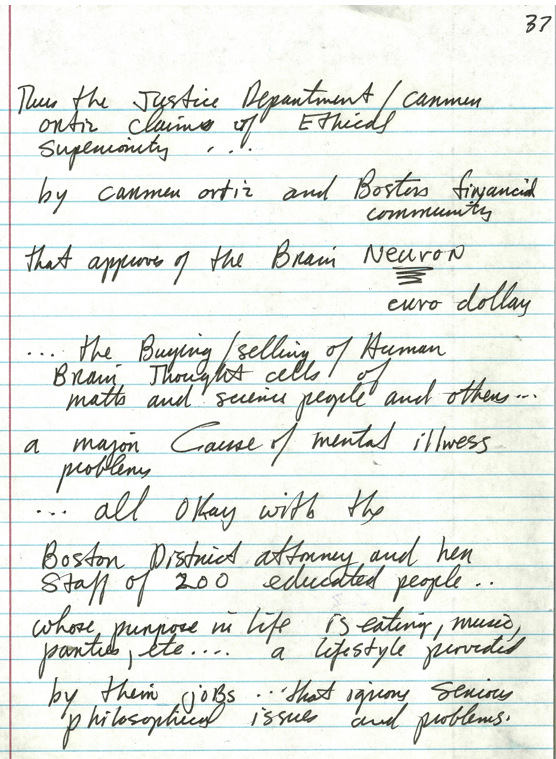 37
Thus the Justice Department/carmen
ortiz claims of Ethical
Superiority ...
by carmen ortiz and Bostons financial
community
that approves of the Brain Neuron
euro dollar
... the Buying/selling of Human
Brain Thought cells of
maths and science people and others...
a major Cause of mental illness
problems
... all Okay with the
Boston District attorney and her
Staff of 200 educated people..
whose purpose in life is eating, music,
parties, etc.... a lifestyle provided
by their jobs ... that ignores serious
philosophical issues and problems.